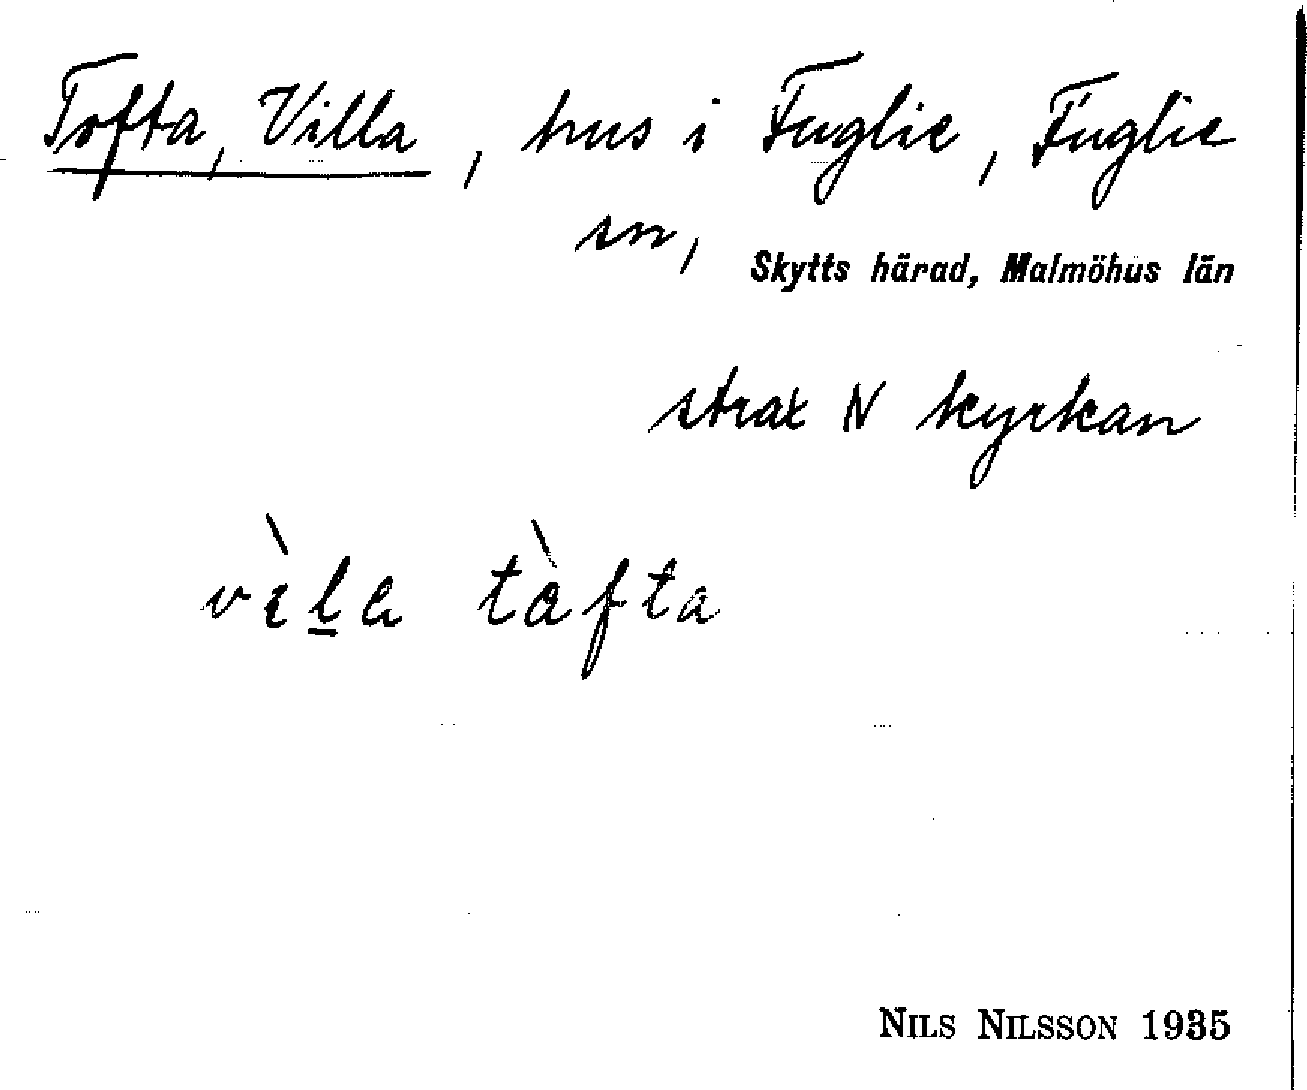 Tofta, Villa, hus i Fuglie, Fuglie
sn, Skytts härad, Malmöhus län
strax N kyrkan
vèl̲a tàfta
NILS NILSSON 1935